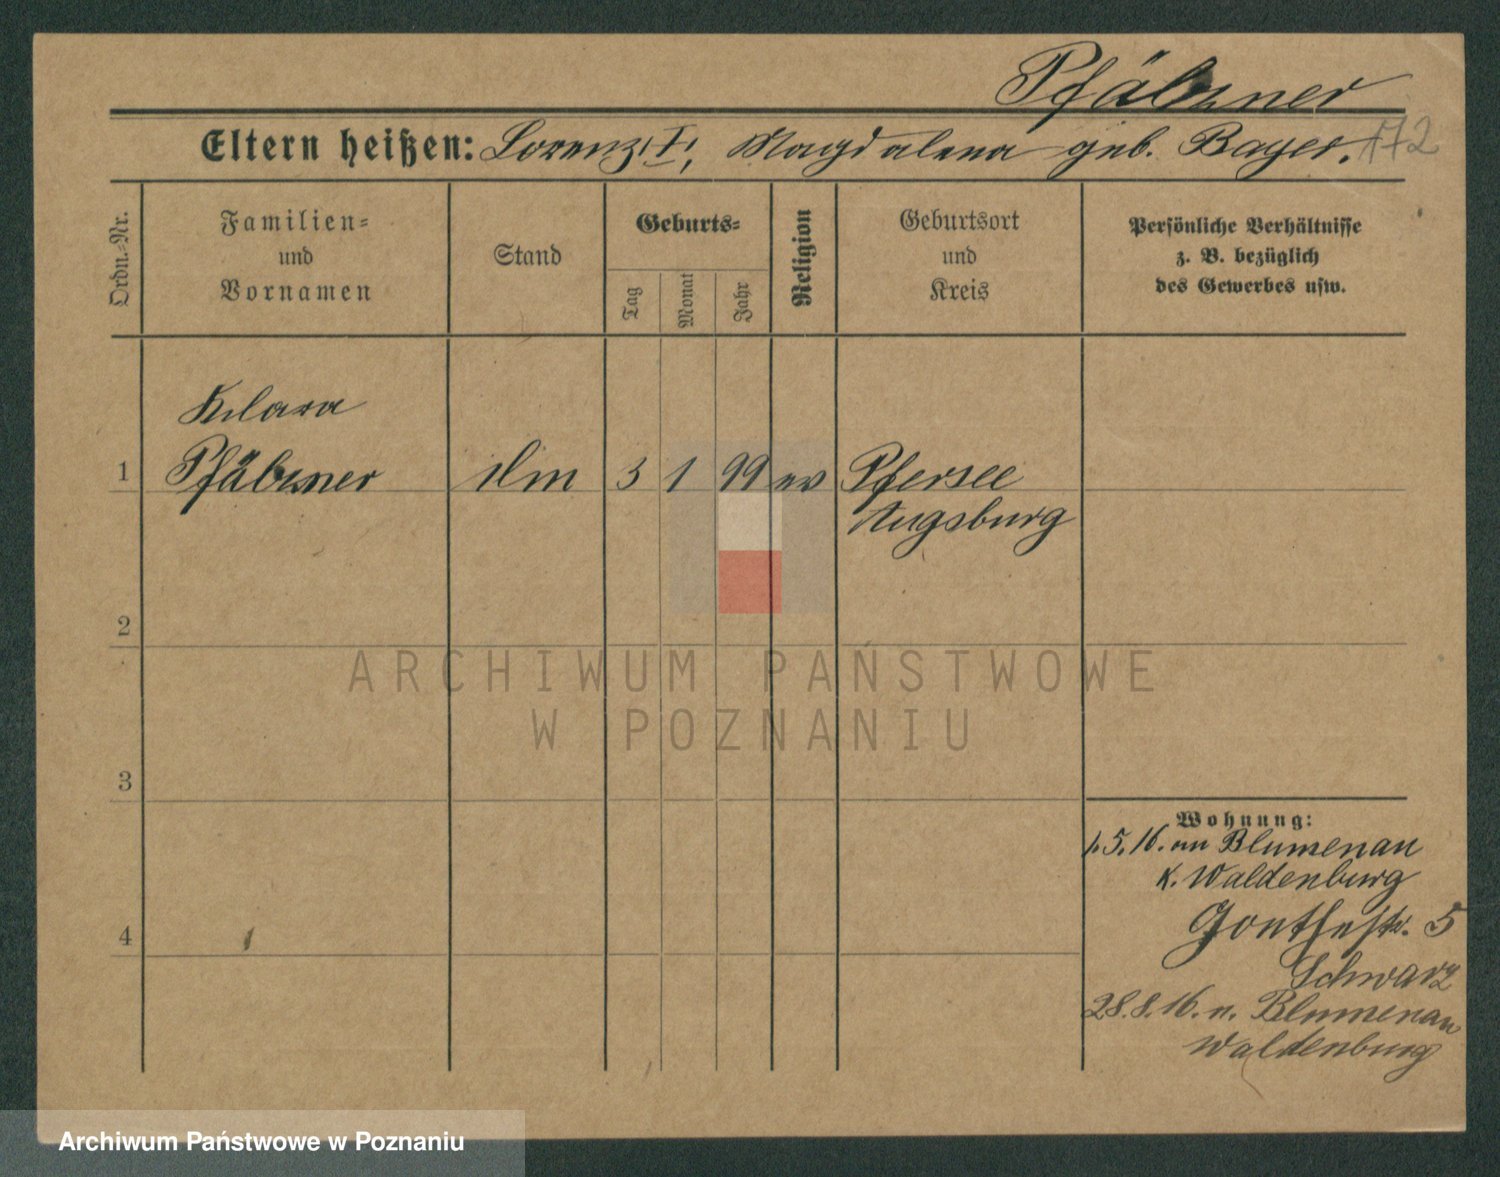 Pfäbzner
Eltern heißen: Lorenz I, Magdalena geb. Bayer.
172
Ordn.-Nr.
Familien-
und
Vornamen
Stand
Geburts-
Tag
Monat
Jahr
Religion
Geburtsort
und
Kreis
Persönliche Verhältnisse
z. B. bezüglich
des Gewerbes usw.
Klara
1 Pfäbzner 3 1 99 ev Pfersee
Augsburg
2
ARCHIWUM PAŃSTWOWE
W POZNANIU
3
Wohnung:
1.5.16. Blumenau
K. Waldenburg
4
5
Schwarz
28.8.16. n. Blumenau
Waldenburg
Archiwum Państwowe w Poznaniu